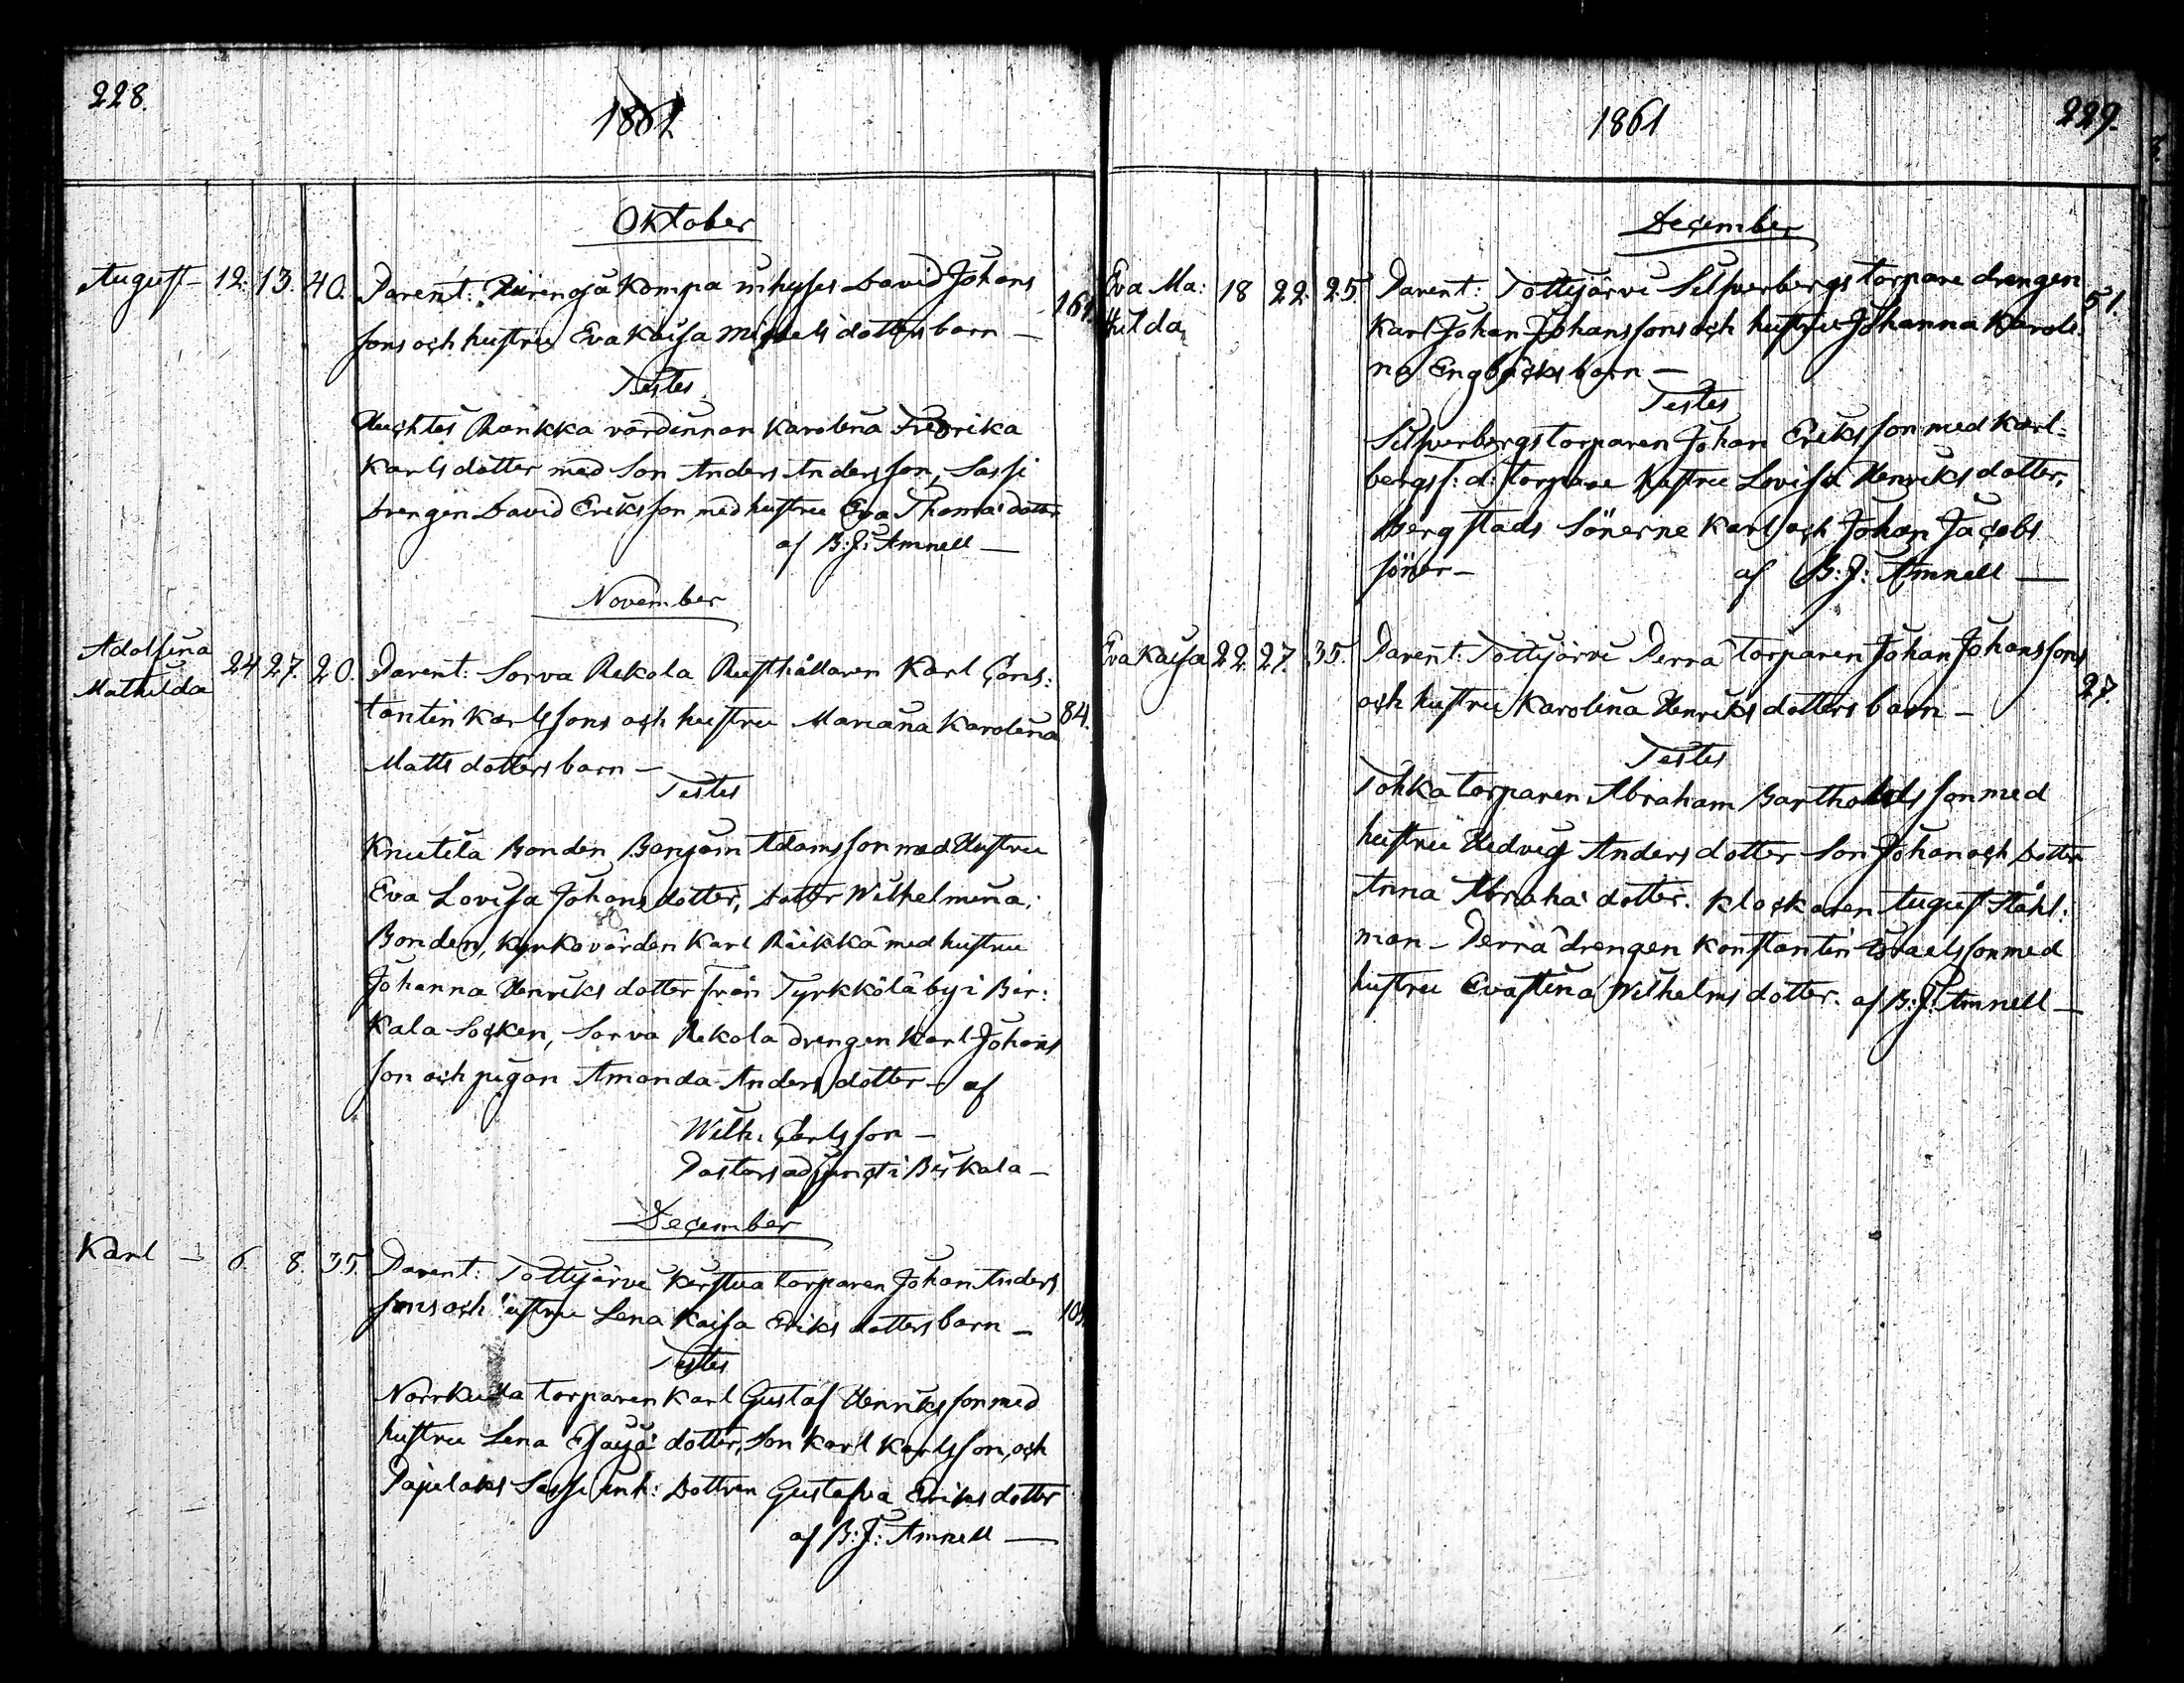 228.
1861
Oktober
August - 12. 13. 40. Parent: Hiirenoja Kompa inhyses David Johans
sons och hustru Eva Kaisa Mickels dotters barn — 161.
Testes
Huchtis Rankka värdinnan Karolina Fredrika
Karls dotter med Son Anders Andersson, Sassi
Drengen David Eriksson med hustru Eva Thomas dotter
af B: J: Amnell —
November
Adolfina
Mathilda 24 27. 20. Parent: Sorva Rekola Rusthållaren Karl Cons:
tantin Karlssons och hustru Mariana Karolina 84.
Matts dotters barn —
Testes
Knutila Bonden Benjam Adamsson med Hustru
Eva Lovisa Johans dotter, Dotter Wilhelmina,
Bonden, Kyrkovärden Karl Räikkä med hustru
Johanna Henriks dotter från Tyrkkölä by i Bir:
kala Socken, Sorva Rekola drengen Karl Johans
son och pigan Amanda Anders dotter — af
Wilh. Carlsson —
Pastorsadjunct i Birkala —
December
Karl - 6. 8. 35. Parent: Tottijärvi Kerstua torparen Johan Anders
sons och hustru Lena Kaisa Eriks dotters barn — 105.
Testes
Norrkulla torparen Karl Gustaf Henriksson med
hustru Lena Esaia dotter, Son Karl Karlsson, och
Pajulaks Sassi inh: Dottren Gustafva Eriks dotter
af B: J: Amnell —
1861
229.
December
Eva Ma:
thilda 18 22. 25. Parent: Tottijärvi Silfverbergs torpare drengen 51.
Karl Johan Johanssons och hustru Johanna Karoli:
na Engbäcks barn —
Testes
Silfverbergs torparen Johan Eriksson med Karl:
bergs f: d: torpare hustru Lovisa Henriks dotter,
Bergstads Sönerne Karl och Johan Jacobs
söner — af B: J: Amnell —
Eva Kaisa 22. 27. 35. Parent: Tottijärvi Perrä torparen Johan Johanssons
och hustru Karolina Henriks dotters barn — 27.
Testes
Tohka torparen Abraham Bartholdsson med
hustru Hedvig Anders dotter Son Johan och Dotter
Anna Abraha dotter. Klockaren August Ståhl:
man — Perrä drengen Konstantin Israelsson med
hustru Evastina Wilhelms dotter. af B: J: Amnell —